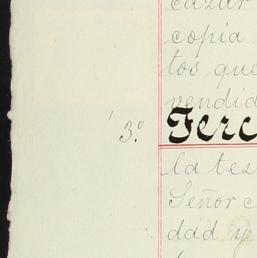 cazar
copia
tos que
vendid
3.º Terc
la tes
Señor c
dad y